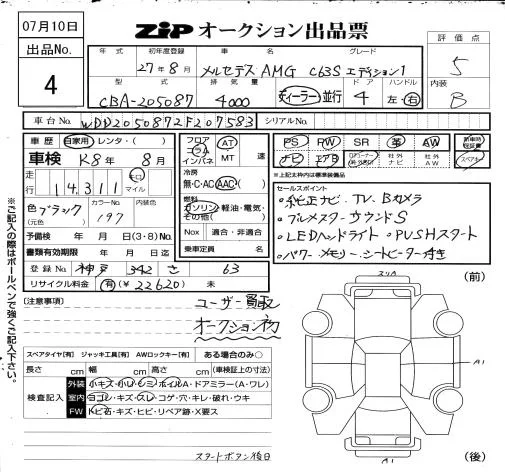 07月10日
ZIP オークション出品票
出品No.
4
年式 初年度登録 車名 グレード
27年8月 メルセデスAMG C63S エディション1
評価点
5
型式 排気量 ドア ハンドル
CBA-205087 4000 ディーラー・並行 4 左・右
内装
B
車台No. WDD2050872F207583 シリアルNo.
車歴 自家用・レンタ・( )
車検 R8年8月
走行 14,311 キロ マイル
色 ブラック (元色) カラーNo. 197 内装色
予備検 年 月 日(3・8)No.
書類有効期限 年 月 日迄
登録No. 神戸 342 さ 63
リサイクル料金 有(¥22620) 未
フロア コラム インパネ AT MT 速
冷房 無・C・AC AAC
燃料 ガソリン・軽油・電気・その他( )
Nox 適合・非適合
乗車定員 名
PS PW SR 革 AW 新車時保証書
ナビ エアB 社外ナビ 社外AW スペアキー
※上記太枠内は標準装備品
セールスポイント
・純正ナビ TV Bカメラ
・ブルメスターサウンドS
・LEDヘッドライト ・PUSHスタート
・パワー メモリー シートヒーター付き
[注意事項]
ユーザー買取
オークション初
スペアタイヤ[有] ジャッキ工具[有] AWロックキー[有] ある場合のみ○
長さ cm 幅 cm 高さ cm (車検証上の寸法)
検査記入
外装 小キズ・小凹 シミ・ホイルA・ドアミラー(A・ワレ)
室内 ヨゴレ・キズ・スレ・コゲ・穴・キレ・破れ・ウキ
FW トビ石・キズ・ヒビ・リペア跡・X要ス
スタートボタン後日
(前)
A1
A1
(後)
※ご記入の際はボールペンで強くご記入下さい。